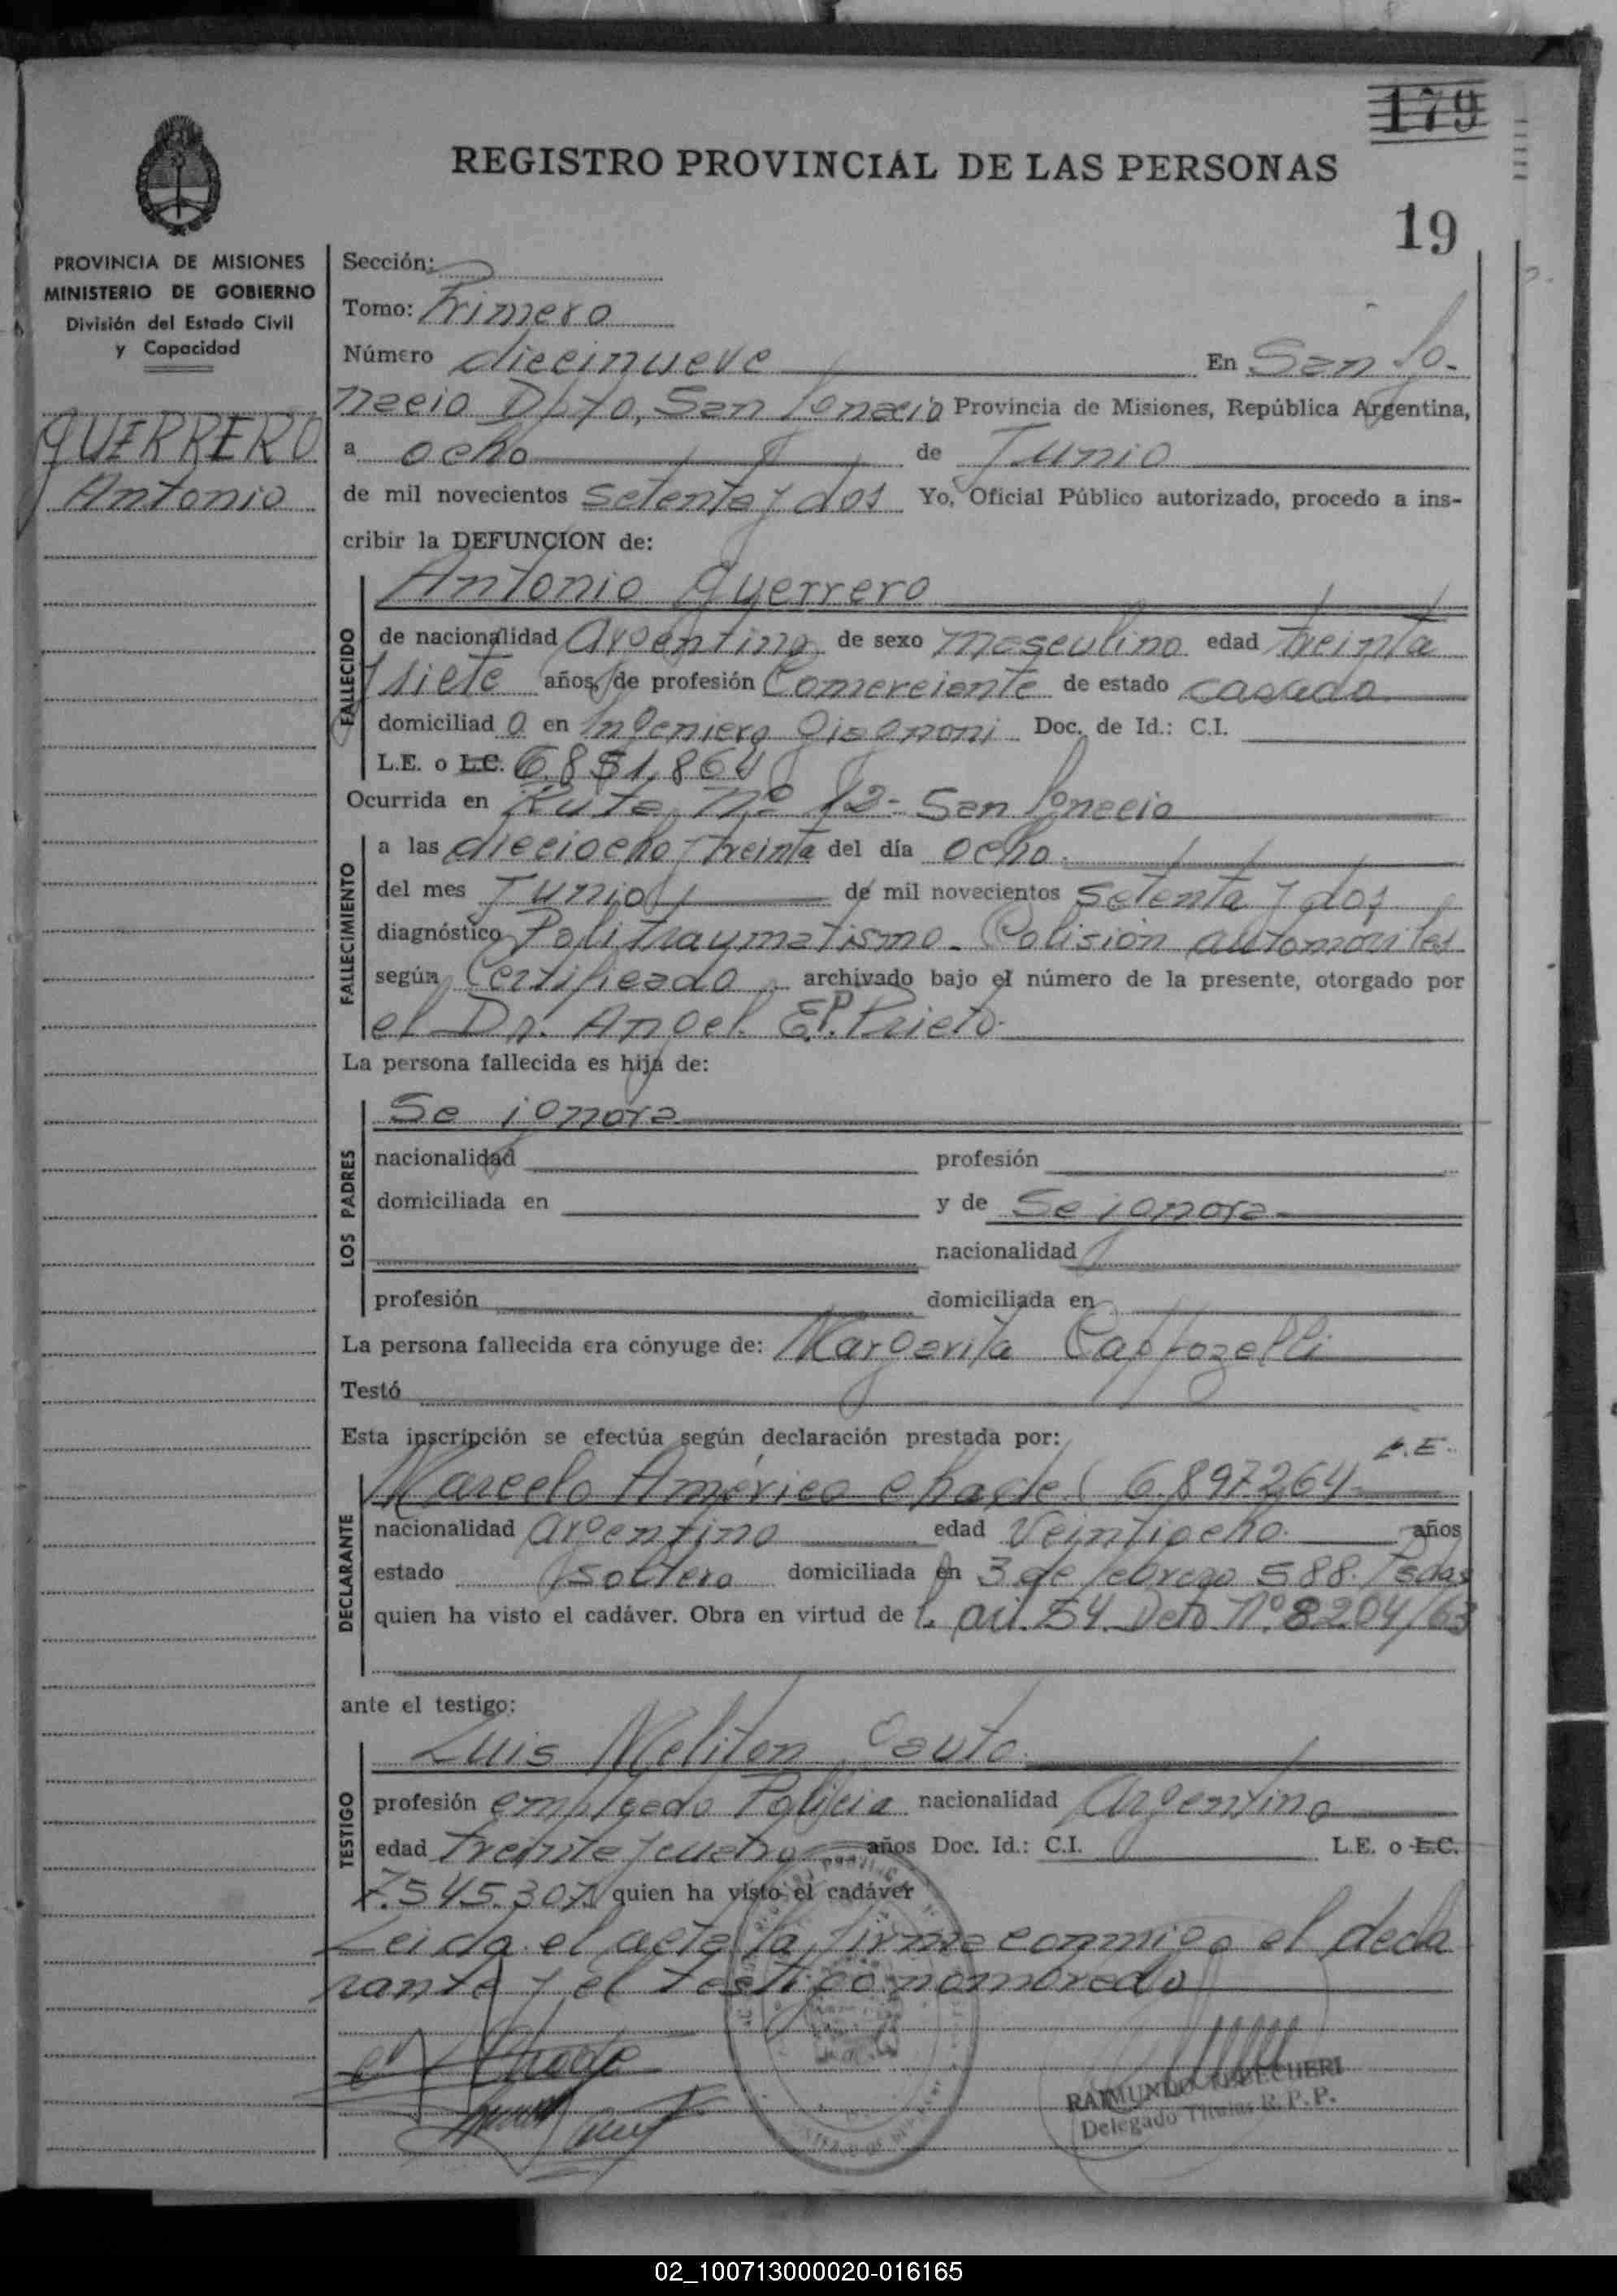 179
REGISTRO PROVINCIAL DE LAS PERSONAS
19
PROVINCIA DE MISIONES
MINISTERIO DE GOBIERNO
División del Estado Civil
y Capacidad
GUERRERO
Antonio
Sección:
Tomo: Primero
Número diecinueve En San Ig-
nacio Dpto, San Ignacio Provincia de Misiones, República Argentina,
a ocho de Junio
de mil novecientos setenta y dos Yo, Oficial Público autorizado, procedo a ins-
cribir la DEFUNCION de:
Antonio Guerrero
FALLECIDO
de nacionalidad Argentina de sexo masculino edad treinta
y siete años, de profesión Comerciante de estado casado
domiciliad o en Ingeniero Gisgnoni Doc. de Id.: C.I.
L.E. o L.C. 6.851.864
Ocurrida en Ruta nº 12- San Ignacio
FALLECIMIENTO
a las dieciocho y treinta del día ocho
del mes Junio de mil novecientos setenta y dos
diagnóstico Politraumatismo - Colisión automoviles
según Certificado archivado bajo el número de la presente, otorgado por
el Dr. Angel E.P. Prieto.
La persona fallecida es hija de:
LOS PADRES
Se ignora
nacionalidad profesión
domiciliada en y de Se ignora
nacionalidad
profesión domiciliada en
La persona fallecida era cónyuge de: Margarita Cappozelli
Testó
Esta inscripción se efectúa según declaración prestada por:
L.E.
DECLARANTE
Marcelo Américo Chade ( 6.897.264
nacionalidad argentino edad Veintiocho años
estado soltero domiciliada en 3 de febrero 588. Psdas
quien ha visto el cadáver. Obra en virtud de l. art. 54. Deto Nº 8204/63
ante el testigo:
TESTIGO
Luis Meliton Cauto
profesión empleado Policia nacionalidad Argentino
edad treinta y cuatro años Doc. Id.: C.I. L.E. o L.C.
7.545.307 quien ha visto el cadáver
Leida el acta la firma conmigo el decla
rante y el testigo nombrado
RAIMUNDO
Delegado Titular R.P.P.
02_100713000020-016165